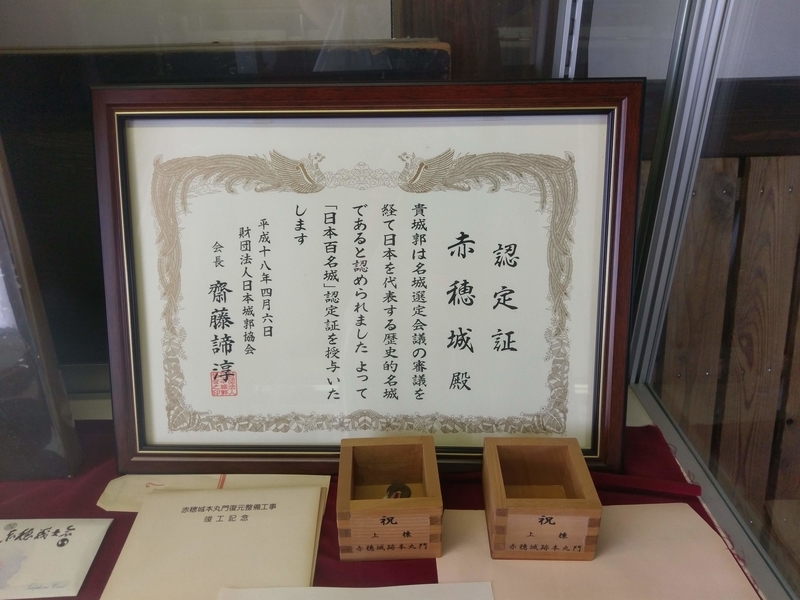 認定証
赤穂城殿
貴城郭は名城選定会議の審議を
経て日本を代表する歴史的名城
であると認められました よって
「日本百名城」認定証を授与いた
します
平成十八年四月六日
財団法人日本城郭協会
会長 齋藤諦淳
赤穂城本丸門復元整備工事
竣工記念
祝
上棟
赤穂城跡本丸門
祝
上棟
赤穂城跡本丸門